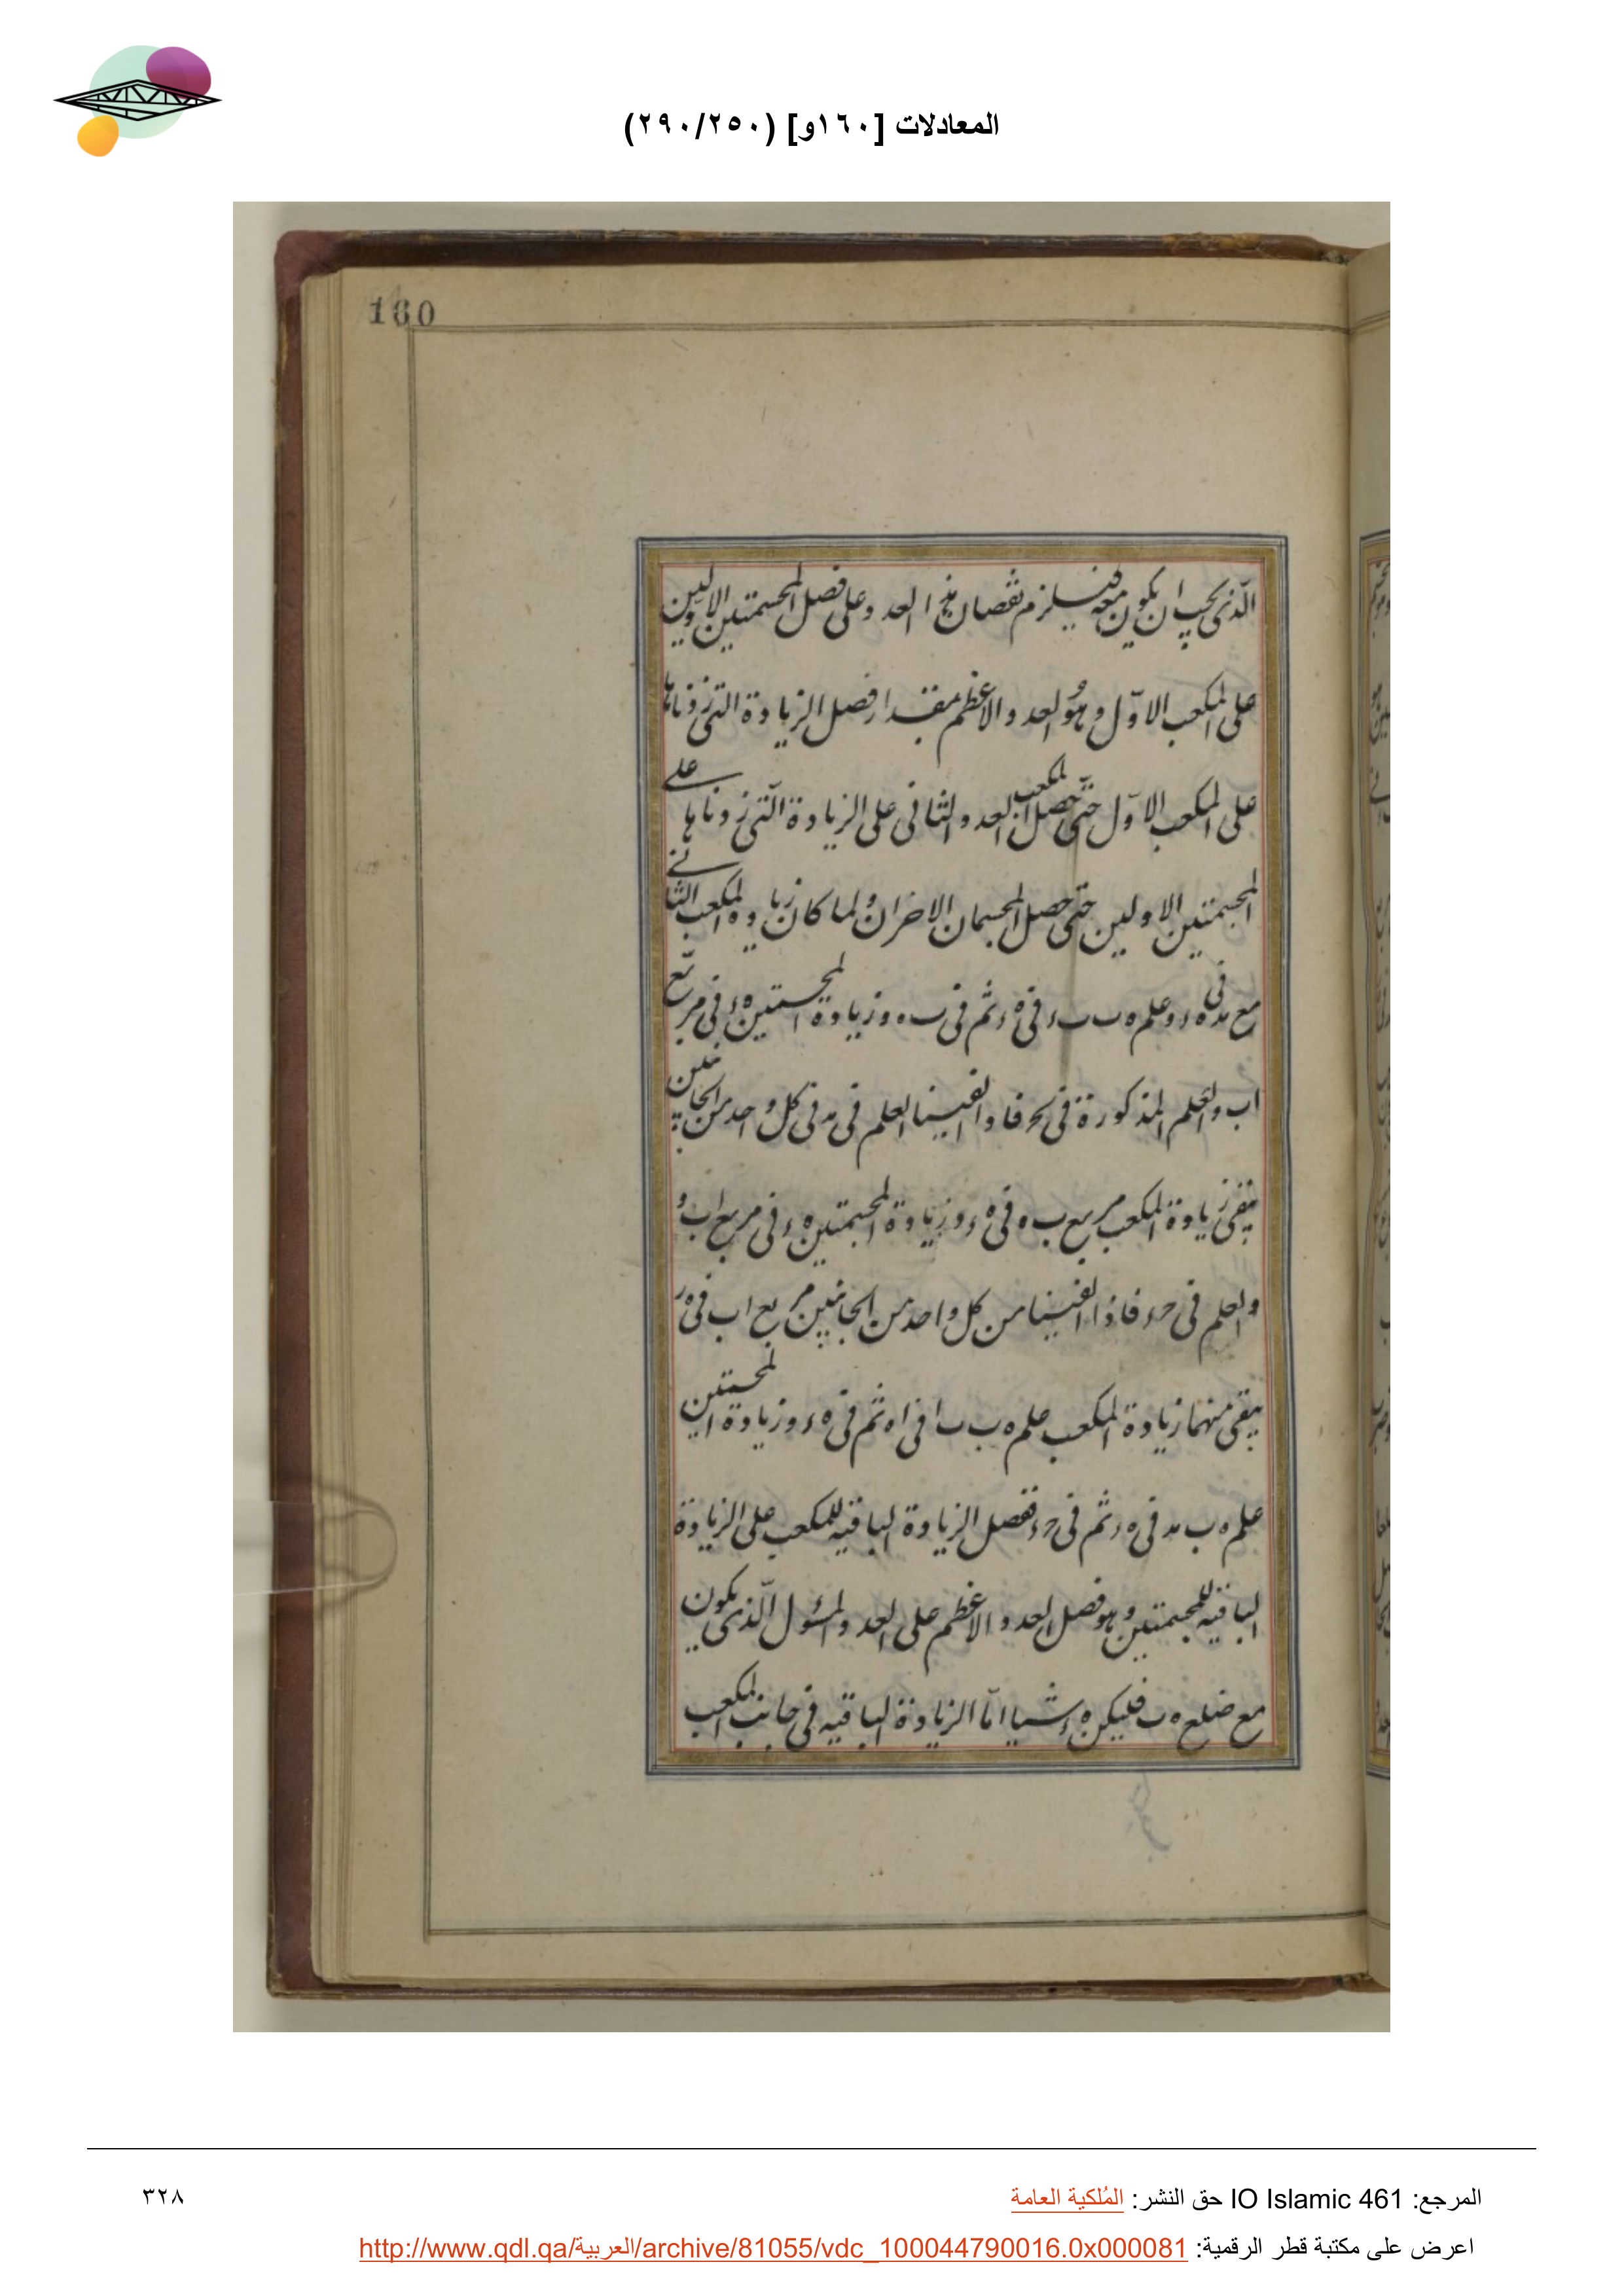 المعادلات [١٦٠و] (٢٩٠/٢٥٠)
160
الّذى يجب ان يكون معه فيلزم نقصان هذا العدد وعلى فضل المجسمتين الاوليين
على المكعب الاوّل وهو العدد الاعظم بمقدار فضل الزيادة التى زدناها
على المكعب الاوّل حتّى حصل المكعب الثانى على الزيادة الّتى زدناها على
المجسمتين الاوليين حتى حصل المجسمان الاخران ولما كان زيادة المكعب الثانى
مع فى ه وعلم ه ب فى ه ثم فى ب ه وزيادة المجسمتين ه فى مربّع
اب والعلم المذكورة فى فاذا القينا العلم فى فى كل واحد من الجانبين
يبقى زيادة المكعب مربع ب ه فى ه وزيادة المجسمتين ه فى مربع اب و
والعلم فى فاذا القينا من كل واحد من الجانبين مربع اب فى ه
يبقى منهما زيادة المكعب علم ه ب ب ا فى اه ثم فى ه وزيادة المجسمتين
علم ه ب فى ه ثم فى ففضل الزيادة الباقيه للمكعب على الزيادة
الباقيه للمجسمتين وهو فضل العدد الاعظم على العدد المسئول الّذى يكون
مع ضلع ه ب فليكن ه شيا امّا الزيادة الباقيه فى جانب المكعب
المرجع: IO Islamic 461 حق النشر: المُلكية العامة
٣٢٨
اعرض على مكتبة قطر الرقمية: http://www.qdl.qa/العربية/archive/81055/vdc_100044790016.0x000081